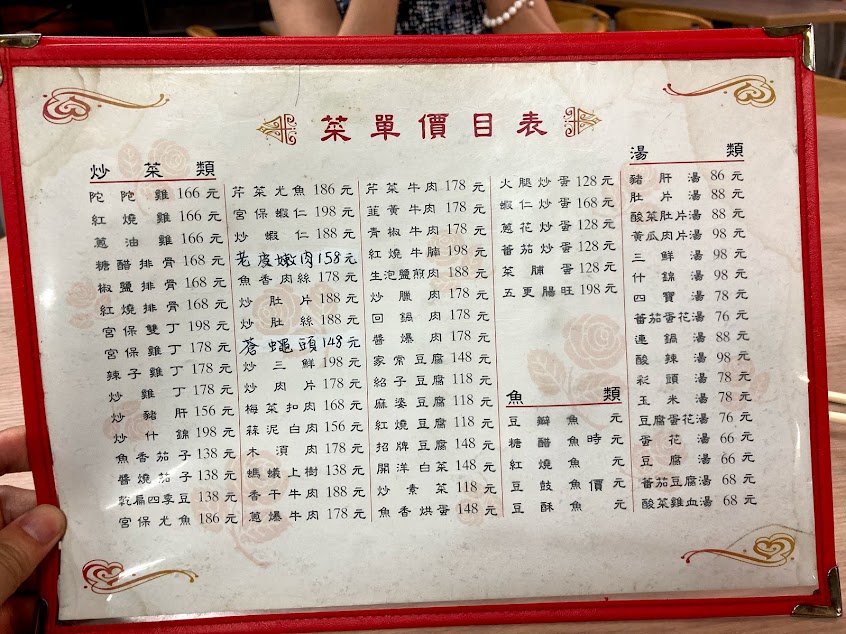 菜單價目表
炒菜類
陀陀雞 166元
紅燒雞 166元
蔥油雞 166元
糖醋排骨 168元
椒鹽排骨 168元
紅燒排骨 168元
宮保雙丁 198元
宮保雞丁 178元
辣子雞丁 178元
炒雞丁 178元
炒豬肝 156元
炒什錦 198元
魚香茄子 138元
醬燒茄子 138元
乾扁四季豆 138元
宮保尤魚 186元
芹菜尤魚 186元
宮保蝦仁 198元
炒蝦仁 188元
老皮嫩肉 158元
魚香肉絲 178元
炒肚片 188元
炒肚絲 188元
蒼蠅頭 148元
炒三鮮 198元
炒肉片 178元
梅菜扣肉 168元
蒜泥白肉 156元
木須肉 178元
螞蟻上樹 138元
香干牛肉 188元
蔥爆牛肉 178元
芹菜牛肉 178元
韮黃牛肉 178元
青椒牛肉 178元
紅燒牛腩 198元
生泡鹽煎肉 188元
炒臘肉 178元
回鍋肉 178元
醬爆肉 178元
家常豆腐 148元
紹子豆腐 118元
麻婆豆腐 118元
紅燒豆腐 118元
招牌豆腐 148元
開洋白菜 148元
炒素菜 118元
魚香烘蛋 148元
火腿炒蛋 128元
蝦仁炒蛋 168元
蔥花炒蛋 128元
蕃茄炒蛋 128元
菜脯蛋 128元
五更腸旺 198元
魚類
豆瓣魚 元
糖醋魚時元
紅燒魚 元
豆鼓魚價元
豆酥魚 元
湯類
豬肝湯 86元
肚片湯 88元
酸菜肚片湯 88元
黃瓜肉片湯 98元
三鮮湯 98元
什錦湯 98元
四寶湯 78元
蕃茄蛋花湯 76元
連鍋湯 88元
酸辣湯 98元
彩頭湯 78元
玉米湯 78元
豆腐蛋花湯 76元
蛋花湯 66元
豆腐湯 66元
蕃茄豆腐湯 68元
酸菜雞血湯 68元